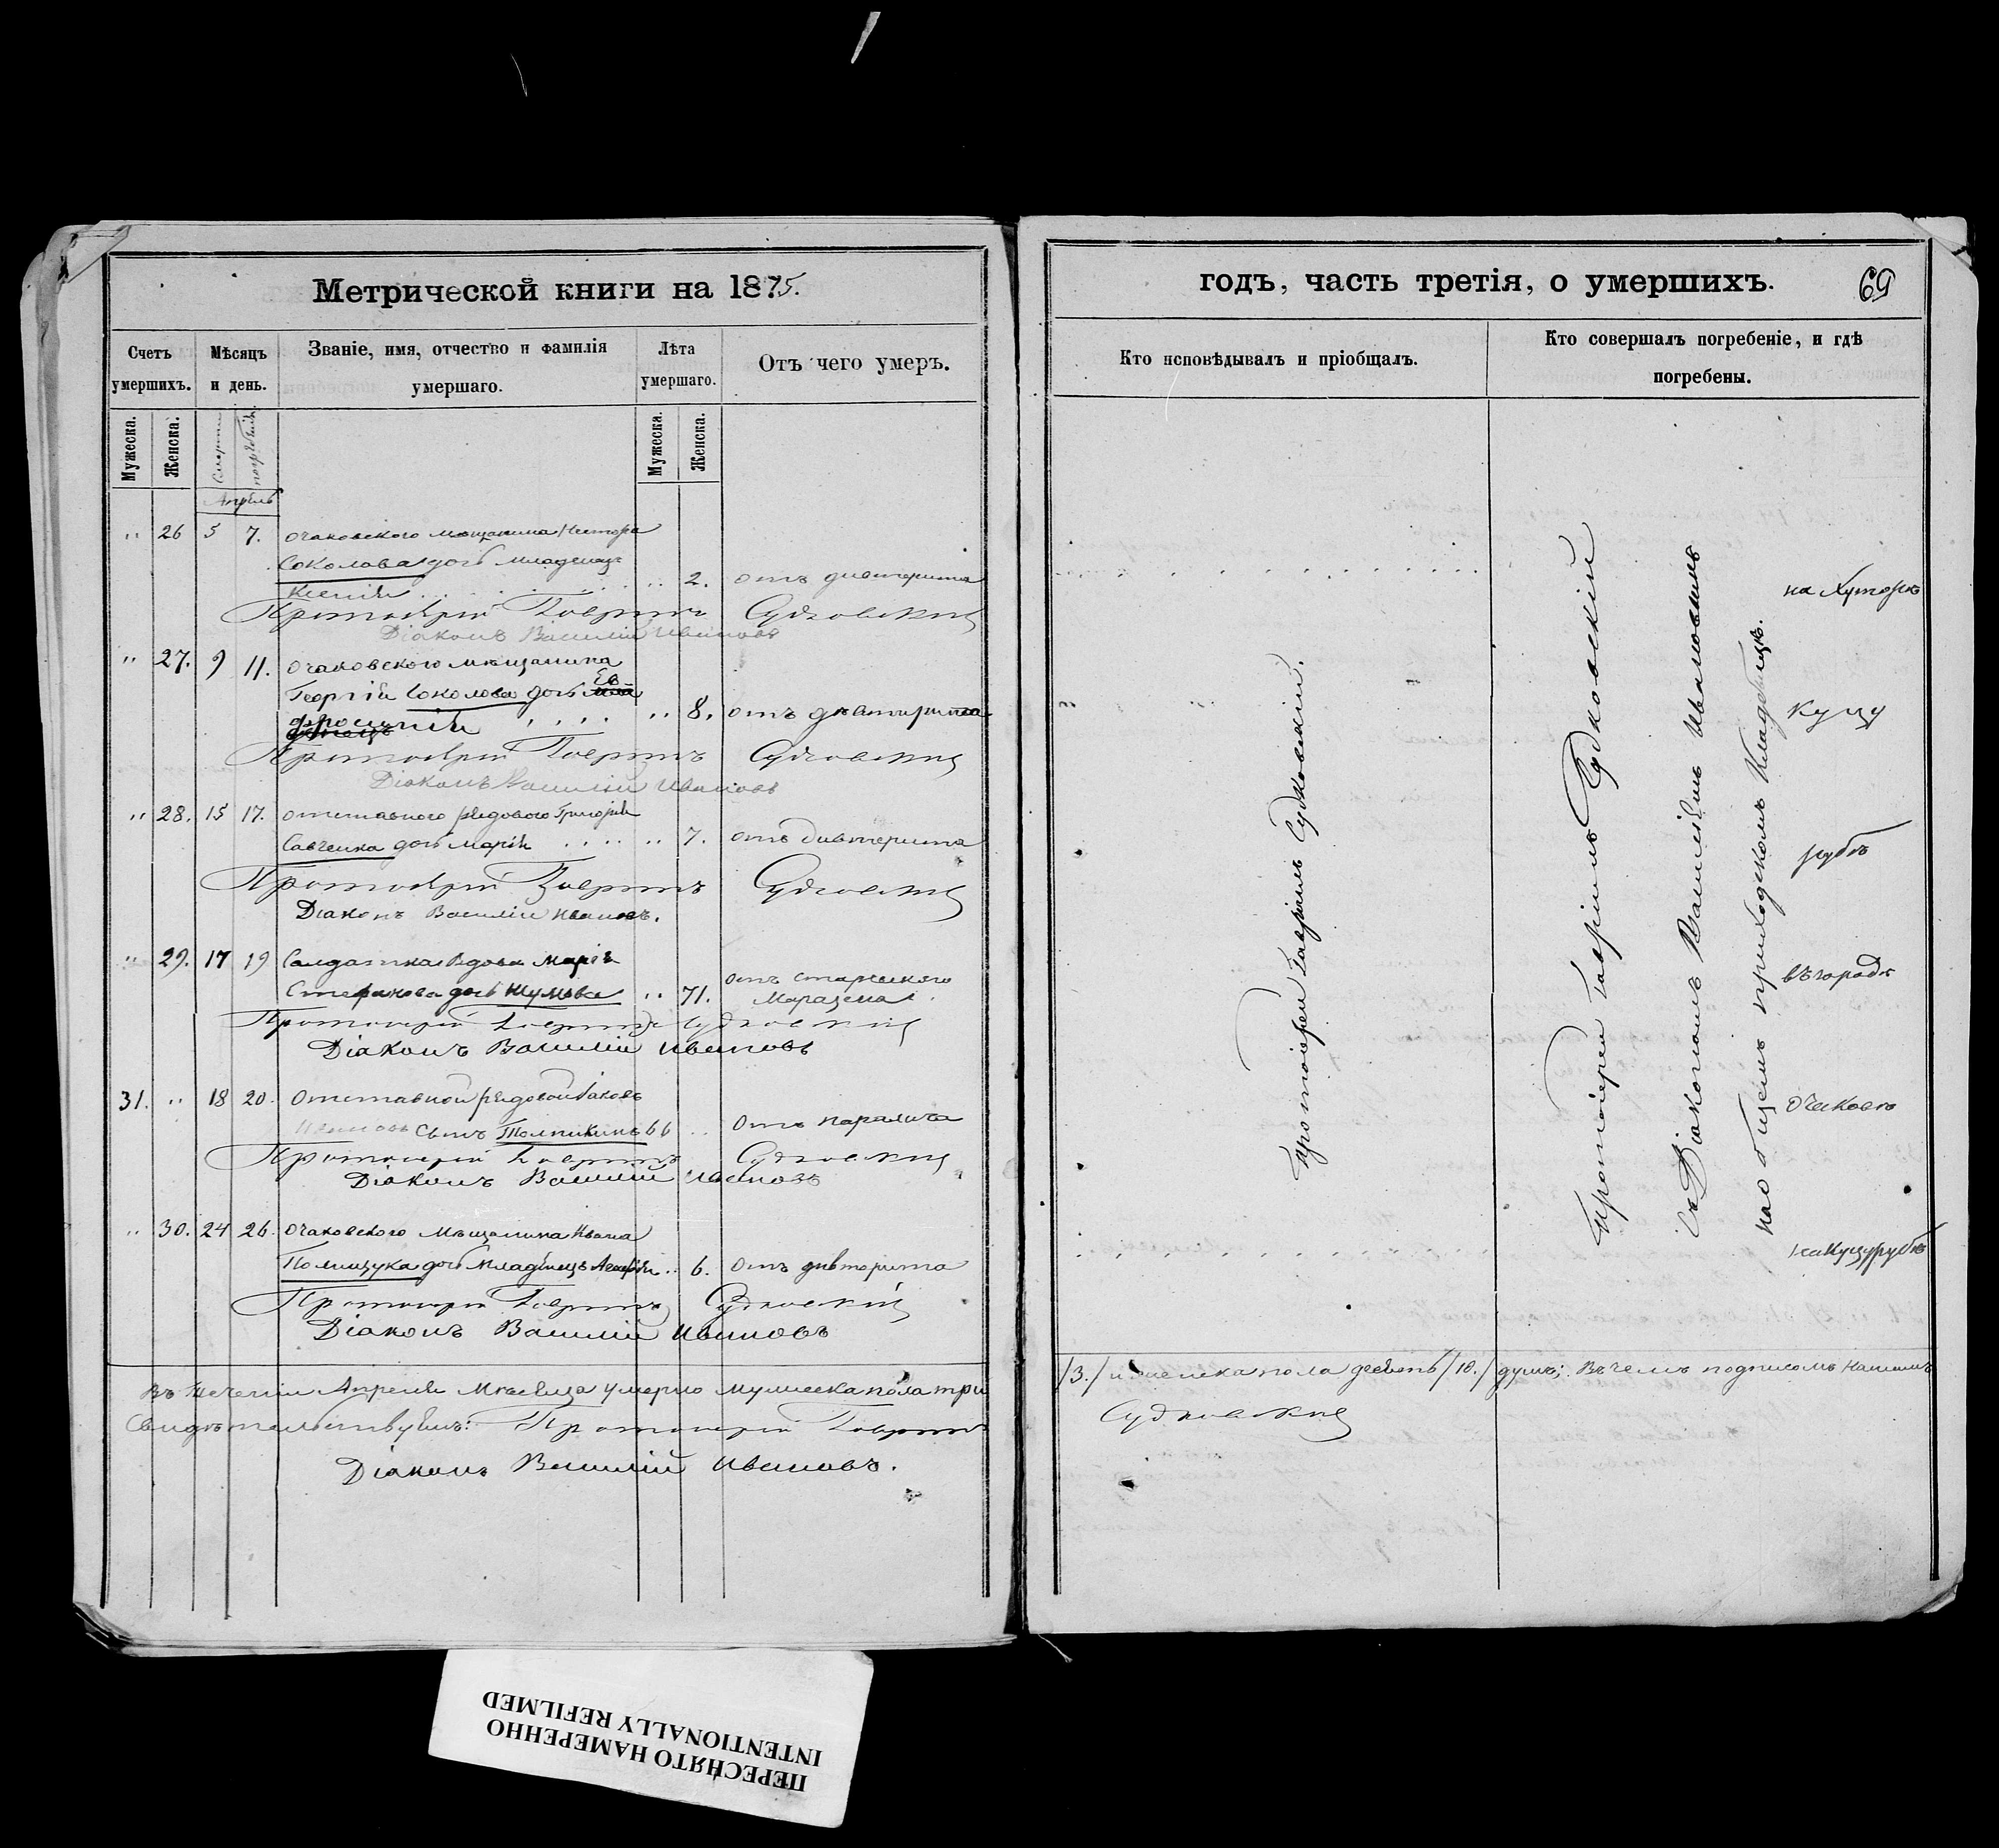 Метрической книги на 1875.
Счетъ умершихъ.
Мѣсяцъ и день.
Званіе, имя, отчество и фамилія умершаго.
Лѣта умершаго.
Отъ чего умеръ.
Мужеска.
Женска.
Смерти
погребенія.
Мужеска.
Женска.
Апрѣль
" 26 5 7. Очаковского мѣщанина Нестора
Соколова дочь младенецъ
Ксенія .. 2. отъ дивтерита
Протоіерей Гавріилъ Судковскій
Діаконъ Василій Ивановъ
" 27. 9 11. Очаковского мѣщанина
Георгій Соколова дочь Ев
фросинія .. 8. отъ дивтерита
Протоіерей Гавріилъ Судковскій
Діаконъ Василій Ивановъ
" 28. 15 17. отставного рядового Григорія
Савченка дочь Марія .. 7. отъ дивтерита
Протоіерей Гавріилъ Судковскій
Діаконъ Василій Ивановъ.
" 29. 17 19 Солдатка Вдова Марія
Стефанова дочь Шумова .. 71. отъ старческого
Маразма
Протоіерей Гавріилъ Судковскій
Діаконъ Василій Ивановъ
31. " 18 20. Отставной рядовой Іаковъ
Ивановъ сынъ Толпикинъ 66 .. Отъ паралича
Протоіерей Гавріилъ Судковскій
Діаконъ Василій Ивановъ
" 30. 24 26. Очаковского Мѣщанина Ивана
Полищука дочь Младенецъ Агафія .. 6. Отъ дивтерита
Протоіерей Гавріилъ Судковскій
Діаконъ Василій Ивановъ
Въ теченіи Апрелѣ Мѣсяца умерло мужеска пола три
Свидѣтельствуемъ: Протоіерей Гавріилъ
Діаконъ Василій Ивановъ.
годъ, часть третія, о умершихъ.
69
Кто исповѣдывалъ и пріобщалъ.
Кто совершалъ погребеніе, и гдѣ погребены.
Протоіерей Гавріилъ Судковскій.
Протоіерей Гавріилъ Судковскій
Съ Діакономъ Василіемъ Ивановымъ
на общемъ приходскомъ Кладбищѣ.
на Хуторѣ
Куцу
рубѣ
въ городѣ
Очаковѣ
на Куцурубѣ
/3./ и женска пола девять /10./ душъ; Въ чемъ подписомъ нашимъ
Судковскій
ПЕРЕСНЯТО НАМЕРЕННО
INTENTIONALLY REFILMED